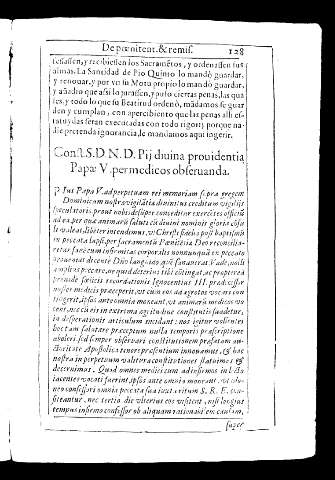 De pœnitent. & remiss. 128
fessassen, y recibiessen los Sacramẽtos, y ordenassen sus
almas. La Santidad de Pio Quinto lo mandò guardar,
y renouar, y por vn su Motu proprio lo mandò guardar,
y añadio que assi lo jurassen, y puso ciertas penas, las quales,
y todo lo que su Beatitud ordenò, mãdamos se guarden
y cumplan, con apercibimiento que las penas alli estatuydas
seran executadas con todo rigor; porque nadie
pretenda ignorancia, le mandamos aqui ingerir.
Const. S. D. N. D. Pij diuina prouidentia
Papæ V. per medicos obseruanda.
Pius Papa V. ad perpetuam rei memoriam supra gregem
Dominicum nostræ vigilãtiæ diuinitus creditum vigilijs
speculatoris prout nobis desuper conceditur exercẽtes officiũ
ad ea per quæ animarũ saluti cũ diuini nominis gloria
valeat, liberter intendimus,
in peccata lapsi, per sacramentũ Pœnitẽtiæ Deo reconcilientur
sanctum infirmitas corporalis nonnunquã ex peccato
proueniat dicente Dño languido quẽ sanauerat Vade, noli
amplius peccare, ne quid deterius tibi cõtingat, ac propterea
proinde fœlicis recordationis Innocentius III. prædecessor
noster medicis præceperit, vt cum eos ad ægrotos vocari contigerit,
ipsos ante omnia moneant, vt animarũ medicos vocent,
nec cũ eis in extrema ægritudine constitutis suadetur,
in desperationis articulum incidant: nos igitur volentes
hoc tam salutare præceptum nulla temporis præscriptione
aboleri, sed semper obseruari constitutionem præfatam auctoritate
Apostolica tenore præsentium innouamus, & hac
nostra in perpetuum valitura constitutiones statuimus &
decernimus. Quod omnes medici cum ad infirmos in lecto
iacentes vocati fuerint, ipsos ante omnia moneant, vt idoneo
confessori omnia peccata sua iuxta ritum S. R. E. confiteantur,
nec tertio die vlterius eos visitent, nisi longius
tempus infirmo confessor ob aliquam rationabilem causam,
super